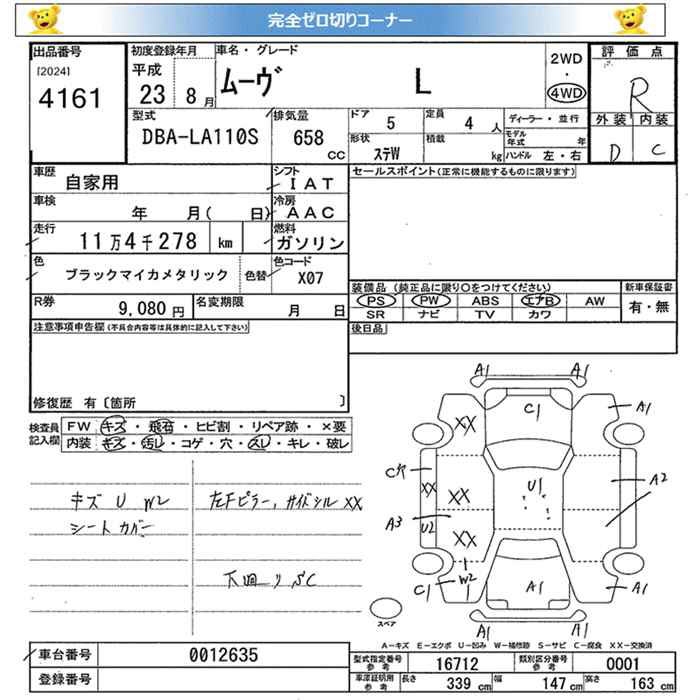 完全ゼロ切りコーナー
出品番号 初度登録年月 車名・グレード 2WD 評価点
[2024] 平成 ムーヴ L ・ R
4161 23 8月 4WD
型式 排気量 ドア 5 定員 4人 ディーラー・並行 外装 内装
DBA-LA110S 658 CC 形状 ステW 積載 kg モデル年式 年 D C
ハンドル 左・右
車歴 自家用 シフト IAT セールスポイント(正常に機能するものに限ります)
車検 年 月( 日) 冷房 AAC
走行 11万4千278 km 燃料 ガソリン
色 ブラックマイカメタリック 色替 色コード X07
装備品(純正品に限り○をつけてください) 新車保証書
R券 9,080円 名変期限 月 日 PS PW ABS エアB AW 有・無
SR ナビ TV カワ
注意事項申告欄(不具合内容等は具体的に記入して下さい) 後日品
修復歴 有〔箇所 〕
検査員記入欄 FW キズ・飛石・ヒビ割・リペア跡・×要
内装 キズ・汚レ・コゲ・穴・スレ・キレ・破レ
キズ U W2 左Fピラー,サイドシル XX
シートカバー
下回りSC
A1 A1
C1
XX A1
C穴
XX XX U1 A2
A3 U2
XX
W2
C1 A1 A1
スペア
A1 A1
A-キズ E-エクボ U-凹み W-補修跡 S-サビ C-腐食 XX-交換済
車台番号 0012635 型式指定番号 参考 16712 類別区分番号 参考 0001
登録番号 車庫証明用 参考 長さ 339 cm 幅 147 cm 高さ 163 cm